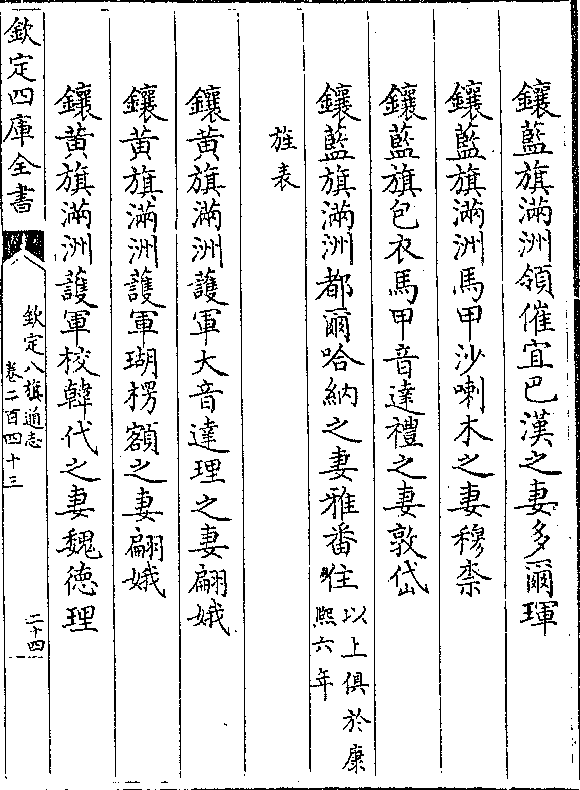 鑲藍旗滿洲領催宜巴漢之妻多爾琿
鑲藍旗滿洲馬甲沙喇木之妻穆柰
鑲藍旗包衣馬甲音達禮之妻敦岱
鑲藍旗滿洲都爾哈納之妻雅番住以上俱於康
熙六年
旌表
鑲黄旗滿洲護軍大音達理之妻翩娥
鑲黄旗滿洲護軍瑚楞額之妻翩娥
鑲黄旗滿洲護軍校韓代之妻魏徳理
欽定四庫全書
欽定八旗通志
卷二百四十三
二十四